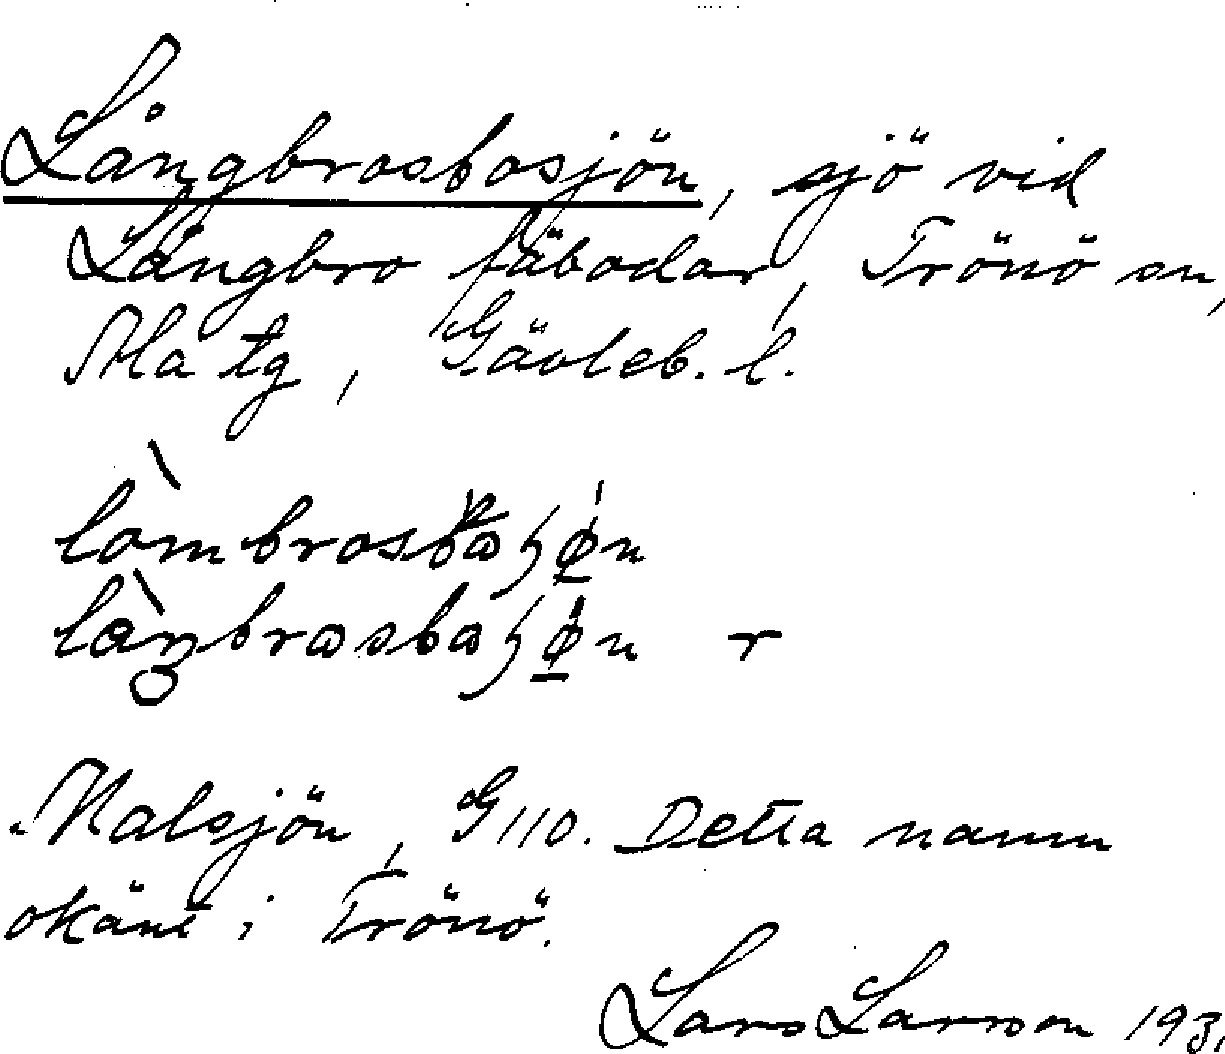 Långbrosbosjön, sjö vid
Långbro fäbodar, Trönö sn,
Ala tg, Gävleb. l.
lòmbrosbɷʃø̱n
làŋbrɷsbɷʃø̱n r
Malsjön, G110. Detta namn
okänt i Trönö.
Lars Larsson 193